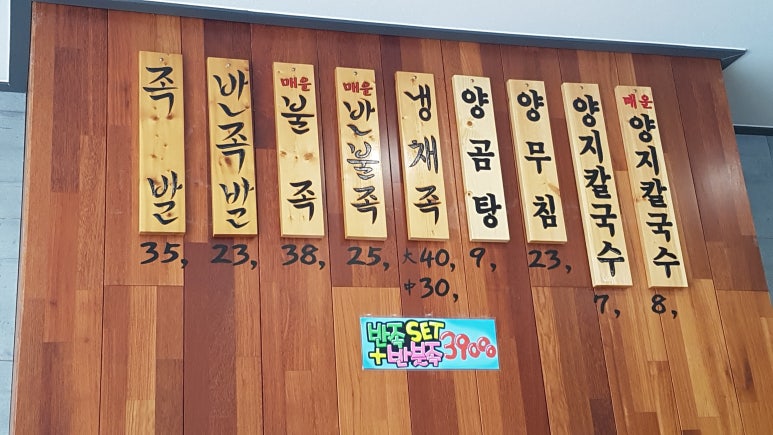 족발
35,
반족발
23,
매운
불족
38,
매운
반불족
25,
냉채족
大 40,
中 30,
양곰탕
9,
양무침
23,
양지칼국수
7,
매운
양지칼국수
8,
반족 SET
+반불족
39000